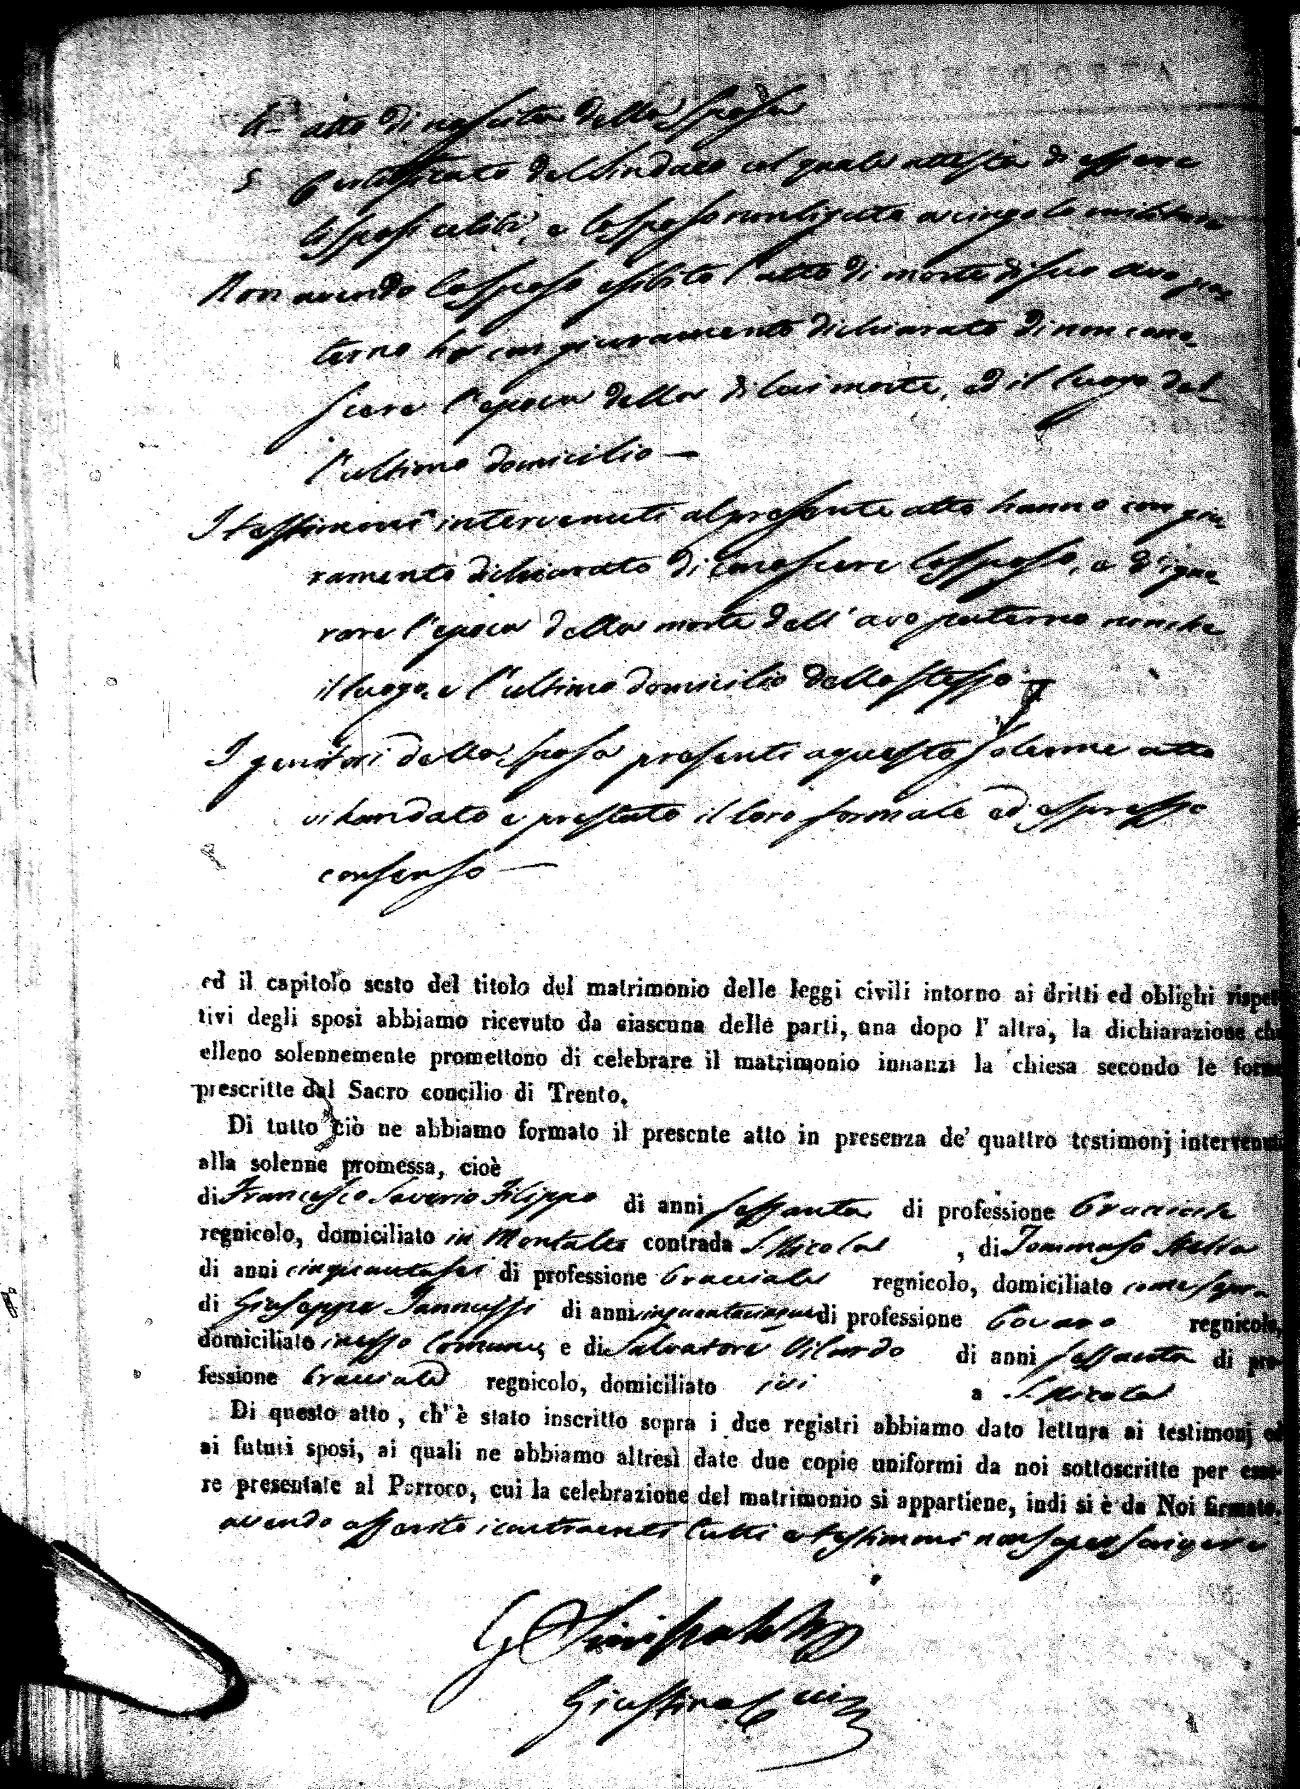 4- atto di nascita della sposa
5 Certificato del Sindaco col quale attesta di essere
li sposi celibi, e lo sposo non ligato a cingolo militare
Non avendo lo sposo esibito l'atto di morte di suo avo pa
terno ha con giuramento dichiarato di non cono-
scere l'epoca della di lui morte, ed il luogo del-
l'ultimo domicilio —
I testimoni intervenuti al presente atto hanno con giu
ramento dichiarato di conoscere lo sposo, e d'igno
rare l'epoca della morte dell'avo paterno nonche
il luogo, e l'ultimo domicilio dello stesso —
I genitori della sposa presenti a questo solenne atto
vi han dato e prestato il loro formale ed espresso
consenso —
ed il capitolo sesto del titolo del matrimonio delle leggi civili intorno ai dritti ed oblighi rispet
tivi degli sposi abbiamo ricevuto da ciascuna delle parti, una dopo l' altra, la dichiarazione che
elleno solennemente promettono di celebrare il matrimonio innanzi la chiesa secondo le forme
prescritte dal Sacro concilio di Trento.
Di tutto ciò ne abbiamo formato il presente atto in presenza de' quattro testimonj intervenuti
alla solenne promessa, cioè
di Francesco Saverio Filippo di anni sessanta di professione Bracciale
regnicolo, domiciliato in Montalto contrada S Nicola , di Tommaso
di anni cinquantasei di professione Bracciale regnicolo, domiciliato come sopra
di Giuseppe Iannussi di anni cinquantacinque di professione Bovaro regnicolo,
domiciliato in esso Comune, e di Salvatore Vilardo di anni sessanta di pro-
fessione Bracciale regnicolo, domiciliato ivi a S Nicola
Di questo atto, ch' è stato inscritto sopra i due registri abbiamo dato lettura ai testimonj ed
ai futuri sposi, ai quali ne abbiamo altresì date due copie uniformi da noi sottoscritte per esse-
re presentate al Parroco, cui la celebrazione del matrimonio si appartiene, indi si è da Noi firmato.
avendo asserito i contraenti tutti e testimoni non saper scrivere